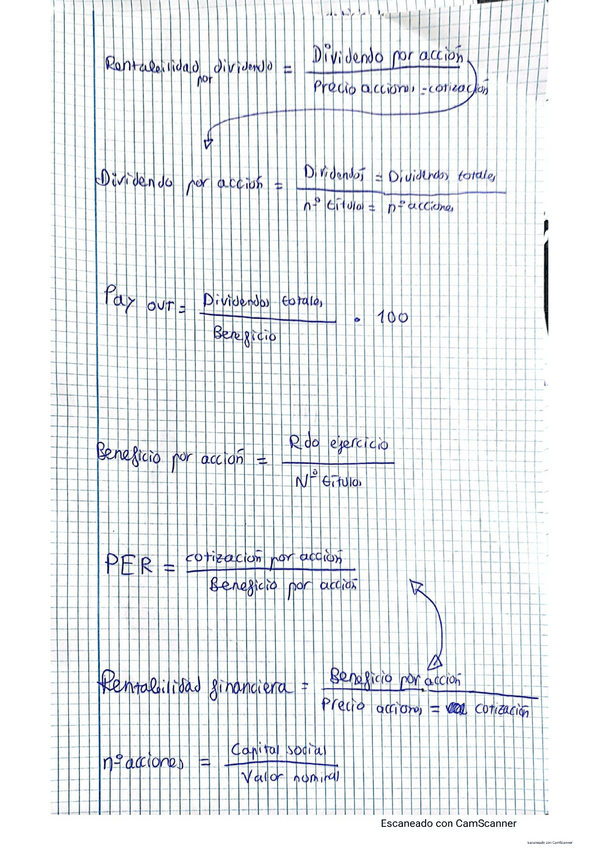 Rentabilidad por dividendo = Dividendo por acción / Precio acciones = cotización
Dividendo por acción = Dividendos = Dividendos totales / nº títulos = nº acciones
Pay out = Dividendos totales / Beneficio · 100
Beneficio por acción = Rdo ejercicio / Nº títulos
PER = cotización por acción / Beneficio por acción
Rentabilidad financiera = Beneficio por acción / Precio acciones = cotización
nº acciones = Capital social / Valor nominal
Escaneado con CamScanner
Escaneado con CamScanner